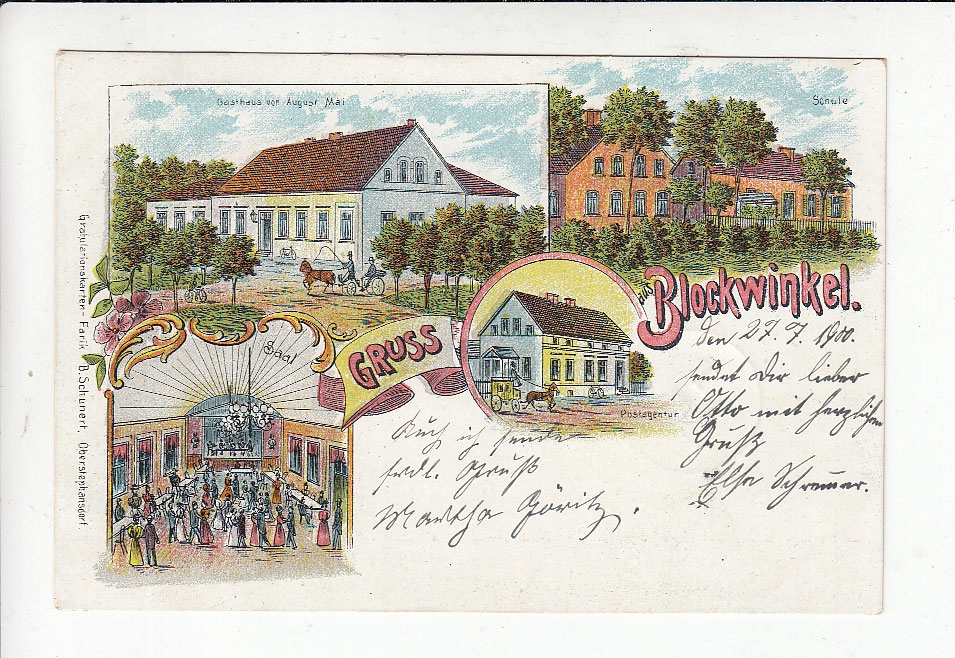 Gasthaus von August Mai
Schule
Saal
GRUSS
aus
Blockwinkel.
Postagentur
Gratulationskarten-Farik B. Schunert. Oberstephansdorf
den 27. 7. 1900.
sendet Dir lieber
Otto mit herzlichem
Gruß
Else Schremmer.
Auch ich sende
frdl. Gruß
Martha Göritz.